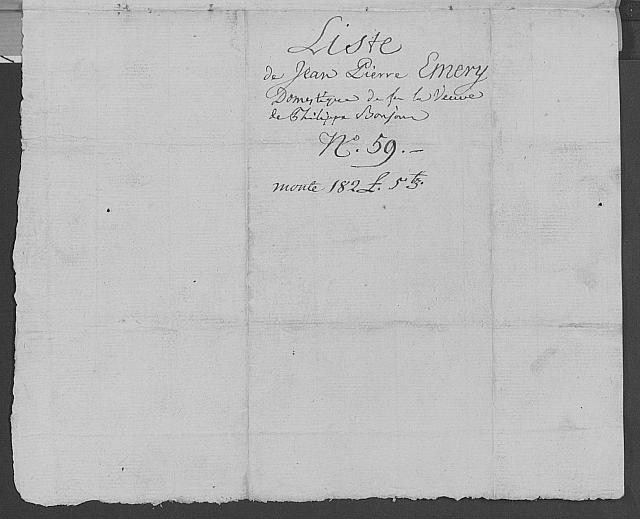 Liste
de Jean Pierre Emery
Domestique de feu la Veuve
de Philippe Bonjour
No. 59.—
monte 182 £. 5 tz.